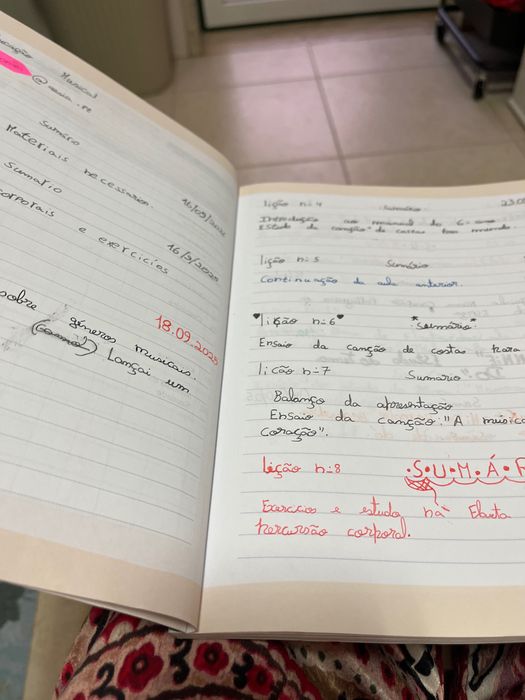 Musical
Sumário
Materiais necessarios. 16/09/2025
Sumario 16/9/2025
corporais e exercicios
18.09.2025
sobre géneros musicais.
Lançai um
lição n=4 Sumário 23.0
Introdução ao manual do 6º ano
Estudo da canção "de costas
lição n=5 Sumário
Continuação da aula anterior.
lição n=6 "Sumário"
Ensaio da canção de costas para
licão n=7 Sumario
Balanço da apresentação
Ensaio da canção "A música
coração".
Lição n=8 •S•U•M•Á•R
Exercicios e estudo na Flauta
Percursão corporal.